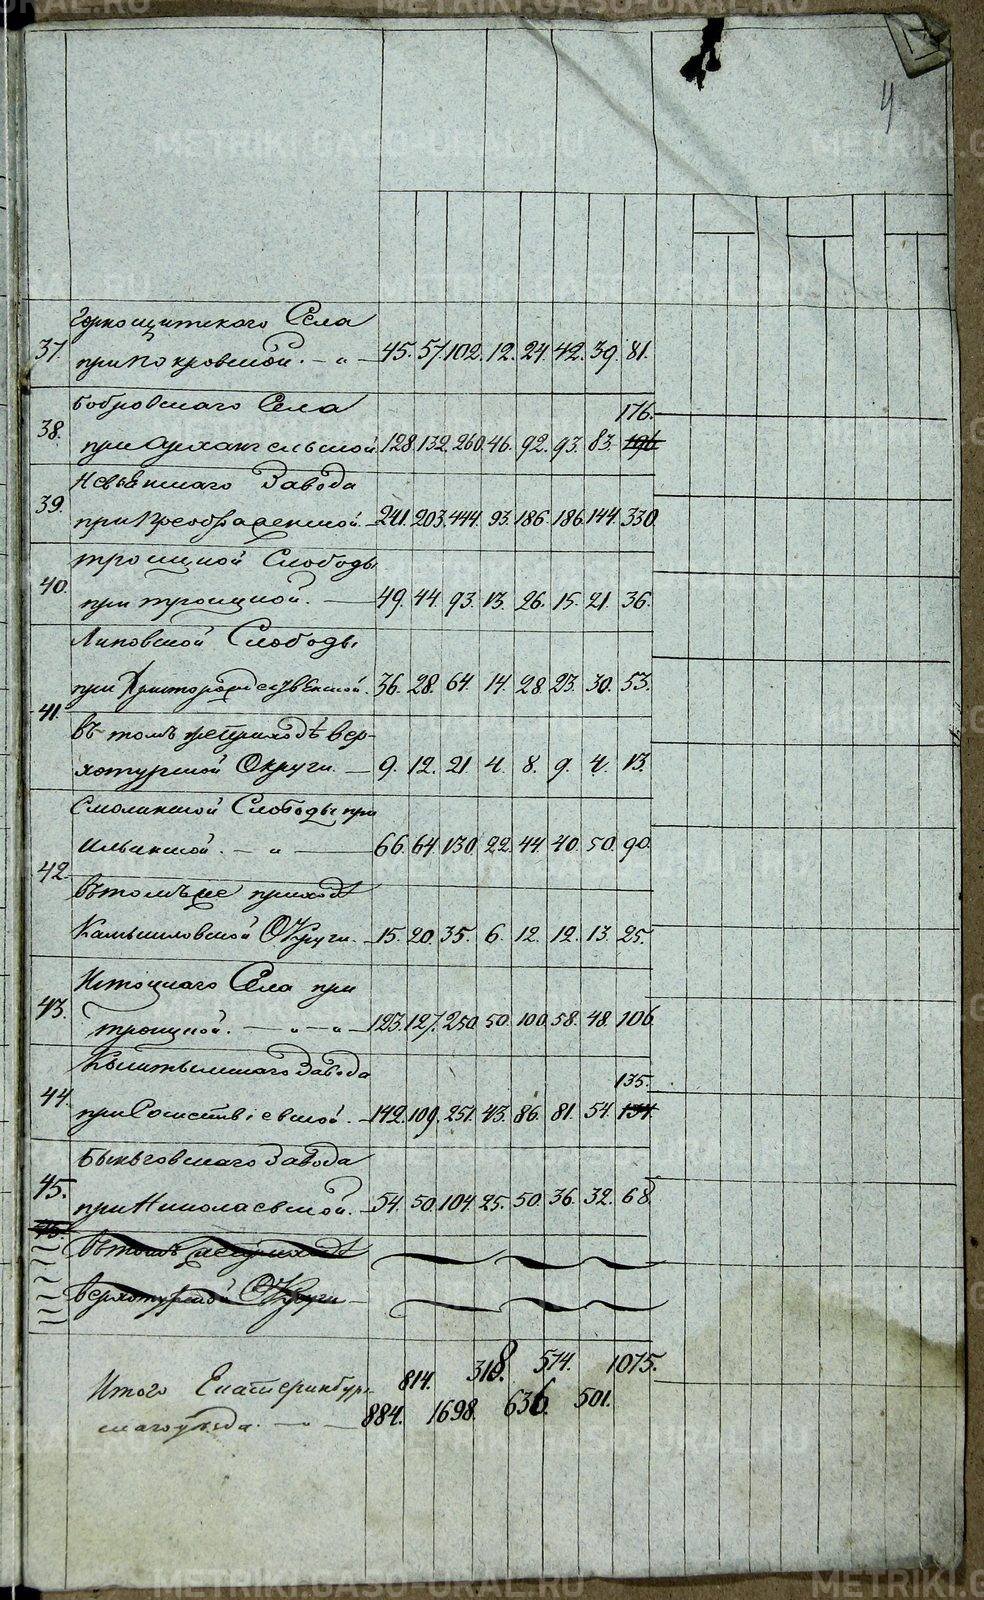 4
Горнощитскаго Села
37. при Покровской. — „ — 45. 57. 102. 12. 24. 42. 39. 81.
Бобровскаго Села 176.
38. при Архангельской 128. 132. 260. 46. 92. 93. 83. 196
Невьянскаго Завода
39. при Преображенской — 241. 203. 444. 93. 186. 186. 144. 330.
Троицкой Слободы
40. при Троицкой. — 49. 44. 93. 13. 26. 15. 21. 36.
Липовской Слободы
при Христорождественской. 36. 28. 64. 14. 28. 23. 30. 53.
41.
въ томъ же приходѣ Вер-
хотурской Округи. — 9. 12. 21. 4. 8. 9. 4. 13.
Смолинской Слободы при
Ильинской. — „ — 66. 64. 130. 22. 44. 40. 50. 90.
42.
въ томъ же приходѣ
Камышловской Округи. — 15. 20. 35. 6. 12. 12. 13. 25.
Истоцкаго Села при
43. Троицкой. — „ — „ — 123. 127. 250. 50. 100. 58. 48. 106.
Кыштымскаго Завода 135.
44. при Сошествiевской. — 142. 109. 251. 43. 86. 81. 54. 134.
Быньговскаго Завода
45. при Николаевской. — 54. 50. 104. 25. 50. 36. 32. 68.
въ томъ же приходѣ
Верхотурской Округи —
814. 318. 574. 1075.
Итого Екатеринбург-
скаго уѣзда. — „ — 884. 1698. 636. 501.
METRIKI.GASO-URAL.RU